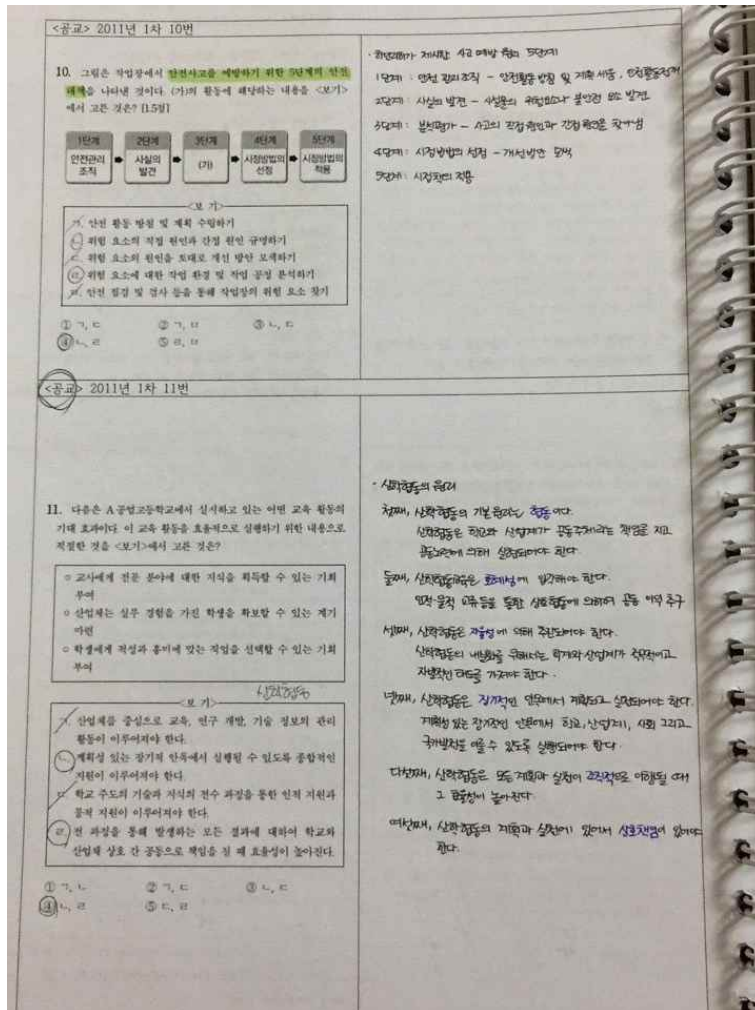 <공교> 2011년 1차 10번
10. 그림은 작업장에서 안전사고를 예방하기 위한 5단계의 안전
대책을 나타낸 것이다. (가)의 활동에 해당하는 내용을 <보기>
에서 고른 것은? [1.5점]
1단계 2단계 3단계 4단계 5단계
안전관리 조직 사실의 발견 (가) 시정방법의 선정 시정방법의 적용
<보 기>
ㄱ. 안전 활동 방침 및 계획 수립하기
ㄴ. 위험 요소의 직접 원인과 간접 원인 규명하기
ㄷ. 위험 요소의 원인을 토대로 개선 방안 모색하기
ㄹ. 위험 요소에 대한 작업 환경 및 작업 공정 분석하기
ㅁ. 안전 점검 및 검사 등을 통해 작업장의 위험 요소 찾기
① ㄱ, ㄷ ② ㄱ, ㅁ ③ ㄴ, ㄷ
④ ㄴ, ㄹ ⑤ ㄹ, ㅁ
제시한 사고 예방 원리 5단계
1단계 : 안전 관리 조직 - 안전활동 방침 및 계획 수립,
2단계 : 사실의 발견 - 위험요소나 불안전 요소 발견
3단계 : 분석평가 - 사고의 직접원인과 간접원인을 찾아냄
4단계 : 시정방법의 선정 - 개선방안 모색
5단계 : 시정책의 적용
<공교> 2011년 1차 11번
11. 다음은 A 공업고등학교에서 실시하고 있는 어떤 교육 활동의
기대 효과이다. 이 교육 활동을 효율적으로 실행하기 위한 내용으로
적절한 것을 <보기>에서 고른 것은?
○ 교사에게 전문 분야에 대한 지식을 획득할 수 있는 기회
부여
○ 산업체는 실무 경험을 가진 학생을 확보할 수 있는 계기
마련
○ 학생에게 적성과 흥미에 맞는 직업을 선택할 수 있는 기회
부여
산학협동
<보 기>
ㄱ. 산업체를 중심으로 교육, 연구 개발, 기술 정보의 관리
활동이 이루어져야 한다.
ㄴ. 계획성 있는 장기적 안목에서 실행될 수 있도록 종합적인
지원이 이루어져야 한다.
ㄷ. 학교 주도의 기술과 지식의 전수 과정을 통한 인적 지원과
물적 지원이 이루어져야 한다.
ㄹ. 전 과정을 통해 발생하는 모든 결과에 대하여 학교와
산업체 상호 간 공동으로 책임을 질 때 효율성이 높아진다.
① ㄱ, ㄴ ② ㄱ, ㄷ ③ ㄴ, ㄷ
④ ㄴ, ㄹ ⑤ ㄷ, ㄹ
· 산학협동의 원리
첫째, 산학협동의 기본원리는 협동이다.
산학협동은 학교와 산업계가 공동주체라는 책임을 지고
공동노력에 의해 실천되어야 한다.
둘째, 산학협동은 호혜성에 입각해야 한다.
인적·물적 교류등을 통한 상호협동에 의하여 공동 이익 추구
셋째, 산학협동은 자율성에 의해 추진되어야 한다.
산학협동의 내실화를 위해서는 학계와 산업계가
자발적인 태도를 가져야 한다.
넷째, 산학협동은 장기적인 안목에서 계획되고 실천되어야 한다.
계획성 있는 장기적인 안목에서 학교, 산업체, 사회 그리고
국가발전을 이룰 수 있도록 실행되어야 한다.
다섯째, 산학협동은 모든 계획과 실천이 조직적으로 이행될 때
그 효율성이 높아진다.
여섯째, 산학협동의 계획과 실천에 있어서 상호책임이 있어야
한다.